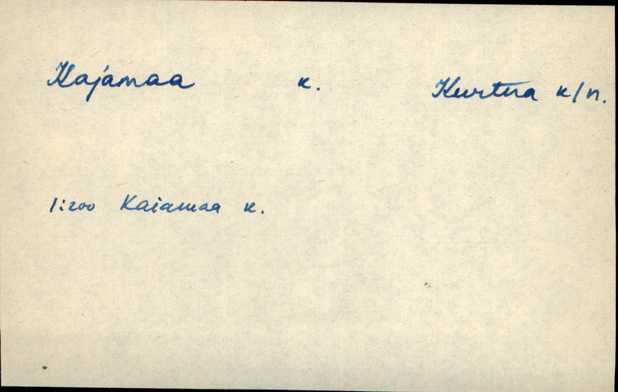 Kajamaa k. Kurtna k/n.
1:200 Kaiamaa k.